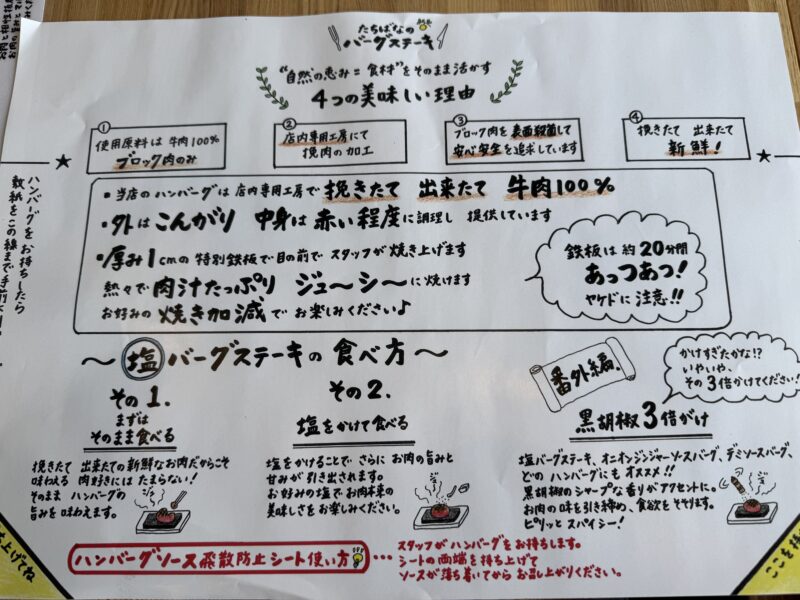 たちばなの
バーグステーキ
"自然の恵み=食材"をそのまま活かす
4つの美味しい理由
①
使用原料は牛肉100%
ブロック肉のみ
②
店内専用工房にて
挽肉の加工
③
ブロック肉を表面殺菌して
安心安全を追求しています
④
挽きたて 出来たて
新鮮!
・当店のハンバーグは店内専用工房で 挽きたて 出来たて 牛肉100%
・外はこんがり 中身は赤い程度に調理し 提供しています
・厚み1cmの特別鉄板で目の前でスタッフが焼き上げます
熱々で肉汁たっぷり ジュ〜シ〜に焼けます
お好みの焼き加減でお楽しみください♪
鉄板は約20分間
あっつあつ!
ヤケドに注意!!
〜塩バーグステーキの食べ方〜
その1.
まずは
そのまま食べる
挽きたて 出来たての新鮮なお肉だからこそ
味わえる 肉好きにはたまらない!
そのまま ハンバーグの
旨みを味わえます。
その2.
塩をかけて食べる
塩をかけることで さらにお肉の旨みと
甘みが引き出されます。
お好みの塩でお肉本来の
美味しさをお楽しみください。
番外編.
かけすぎたかな!?
いやいや、
その3倍かけてください!
黒胡椒3倍がけ
塩バーグステーキ、オニオンジンジャーソースバーグ、デミソースバーグ、
どのハンバーグにもオススメ!!
黒胡椒のシャープな香りがアクセントに。
お肉の味を引き締め、食欲をそそります。
ピリッとスパイシー!
ハンバーグソース飛散防止シート使い方
・・・スタッフがハンバーグをお持ちします。
シートの両端を持ち上げて
ソースが落ち着いてからお召し上がりください。
ハンバーグをお持ちしたら
敷紙をこの線まで手前に
ち上げてね
ここを持